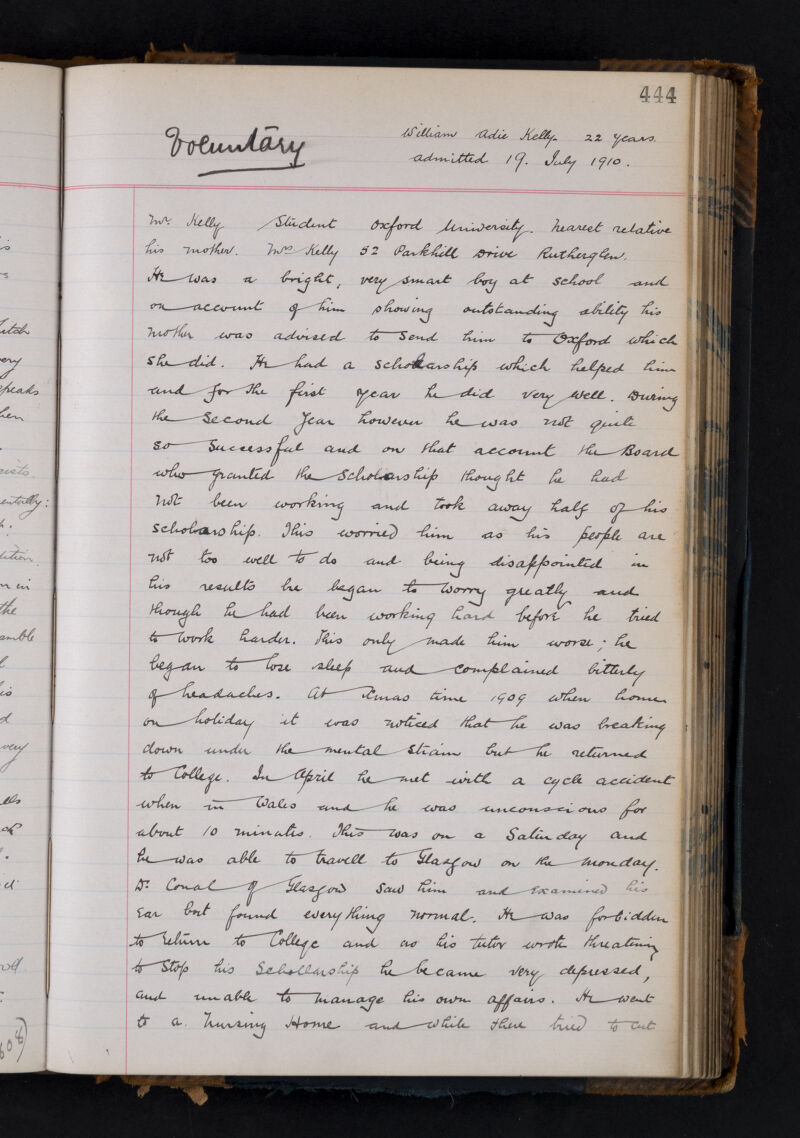 444
Voluntary
William Adie Kelly. 22 years.
admitted 19. July 1910.
Mr. Kelly Student Oxford University. Nearest relative
his mother. Mrs Kelly 52 Parkhill Drive Rutherglen.
He was a bright, very smart boy at school and
on account of him showing outstanding ability his
mother was advised to send him to Oxford which
she did. He had a scholarship which helped him
and for the first year he did very well. During
the second year however he was not quite
so successful and on that account the Board
who granted the scholarship thought he had
not been working and took away half of his
scholarship. This worried him as his people are
not too well to do and being disappointed in
his results he began to worry greatly and
though he had been working hard before he tried
to work harder. This only made him worse; he
began to lose sleep and complained bitterly
of headaches. At Xmas time 1909 when home
on holiday it was noticed that he was breaking
down under the mental strain but he returned
to College. In April he met with a cycle accident
when in Wales and he was unconscious for
about 10 minutes. This was on a Saturday and
he was able to travell to Glasgow on the Monday.
Dr. Conal of Glasgow saw him and examined his
ear but found everything normal. He was forbidden
to return to College and as his tutor wrote threatening
to stop his Schollarship he became very depressed,
and unable to manage his own affairs. He went
to a Nursing Home and while there tried to cut